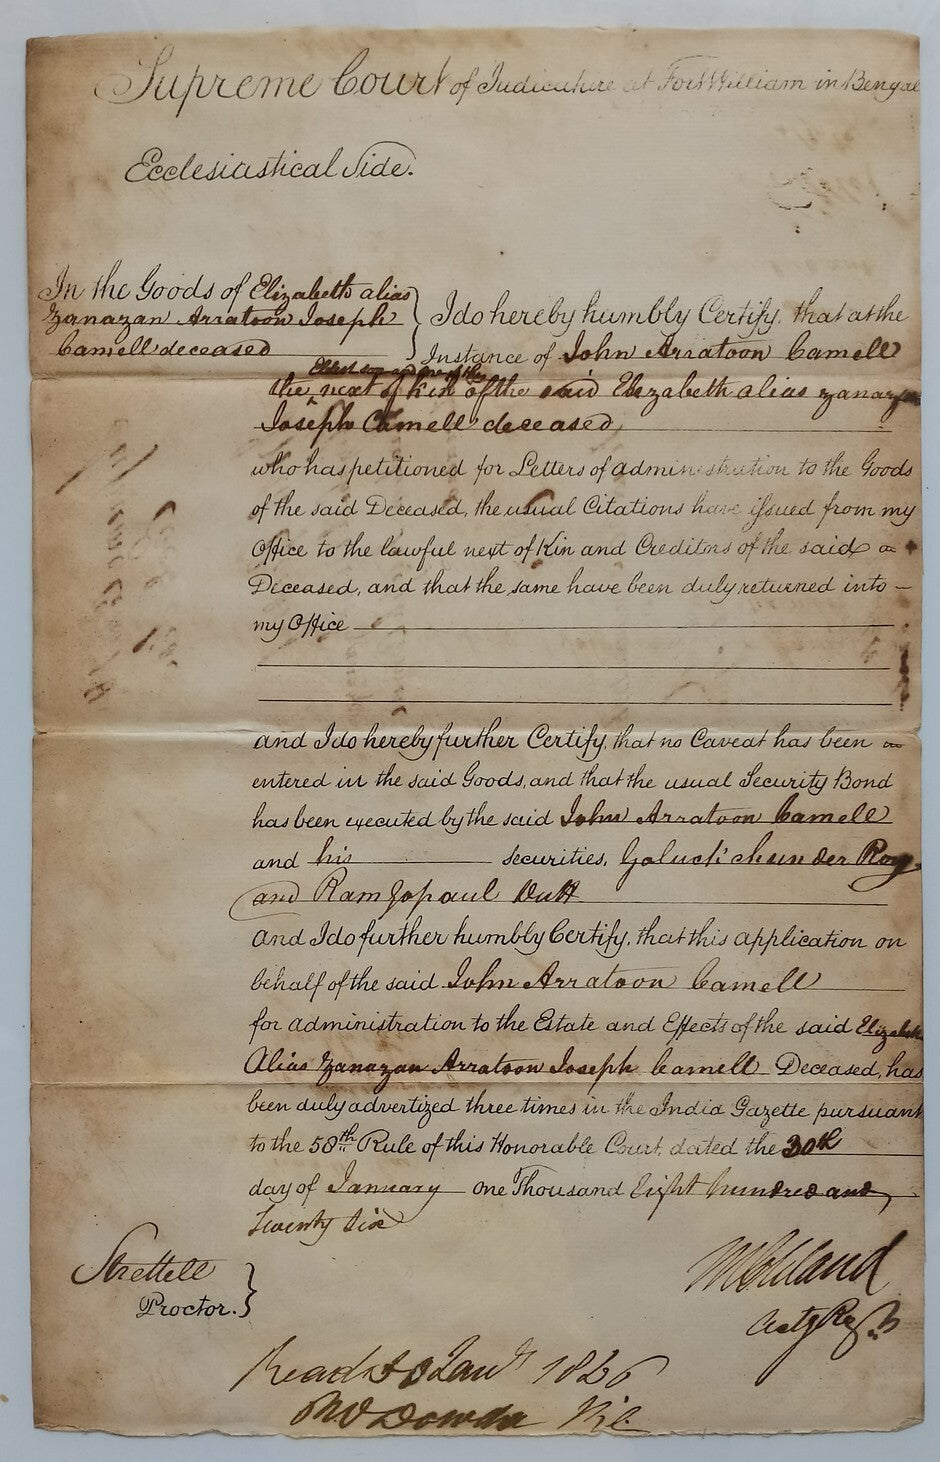 Supreme Court of Judicature at Fort William in Bengal
Ecclesiastical Side.
In the Goods of Elizabeth alias
Zanazan Arratoon Joseph
Camell deceased
I do hereby humbly Certify, that at the
Instance of John Arratoon Camell
Eldest son and one of the
the next of kin of the said Elizabeth alias Zanazan
Joseph Camell deceased,
who has petitioned for Letters of administration to the Goods
of the said Deceased, the usual Citations have issued from my
Office to the lawful next of Kin and Creditors of the said
Deceased, and that the same have been duly returned into
my Office
and I do hereby further Certify, that no Caveat has been
entered in the said Goods, and that the usual Security Bond
has been executed by the said John Arratoon Camell
and his securities, Goluck chunder Roy
and Ram Gopaul Dutt
And I do further humbly Certify, that this application on
behalf of the said John Arratoon Camell
for administration to the Estate and Effects of the said Elizabeth
Alias Zanazan Arratoon Joseph Camell Deceased, has
been duly advertized three times in the India Gazette pursuant
to the 58th Rule of this Honorable Court, dated the 30th
day of January one Thousand Eight hundred and
Twenty Six
Strettell
Proctor.
Acty Regr
Read 30 Jany 1826